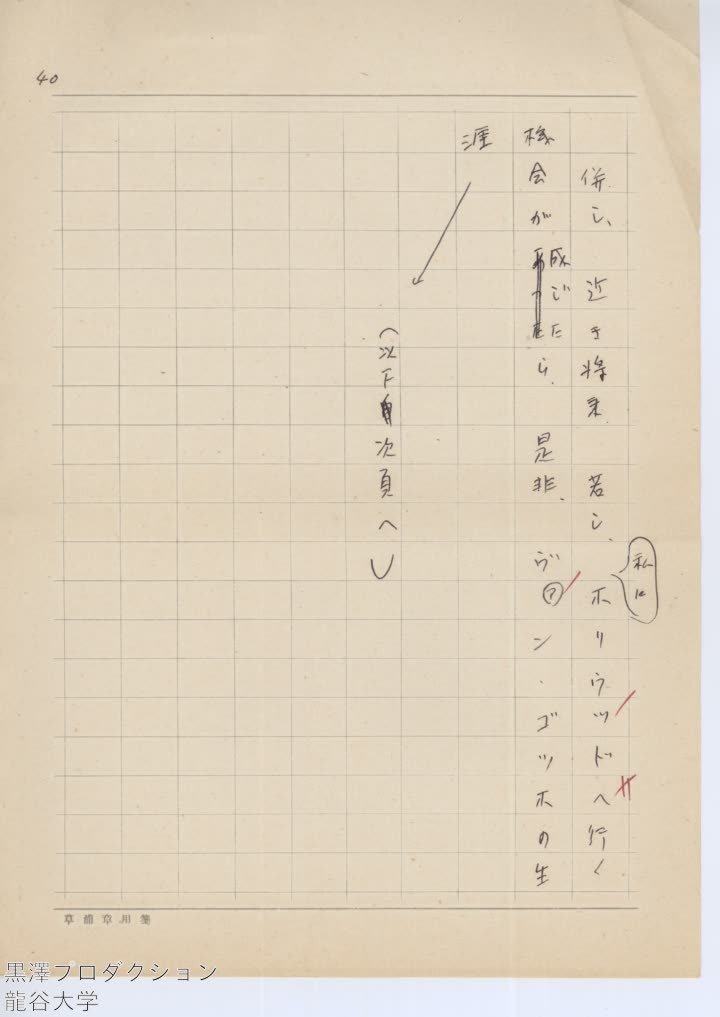 40
併し、近き将来若し、私にホリウッドへ行く
機会が成じたら、是非、ヴァン・ゴッホの生
涯
(以下次頁へ)
草稿章川箋
黒澤プロダクション
龍谷大学